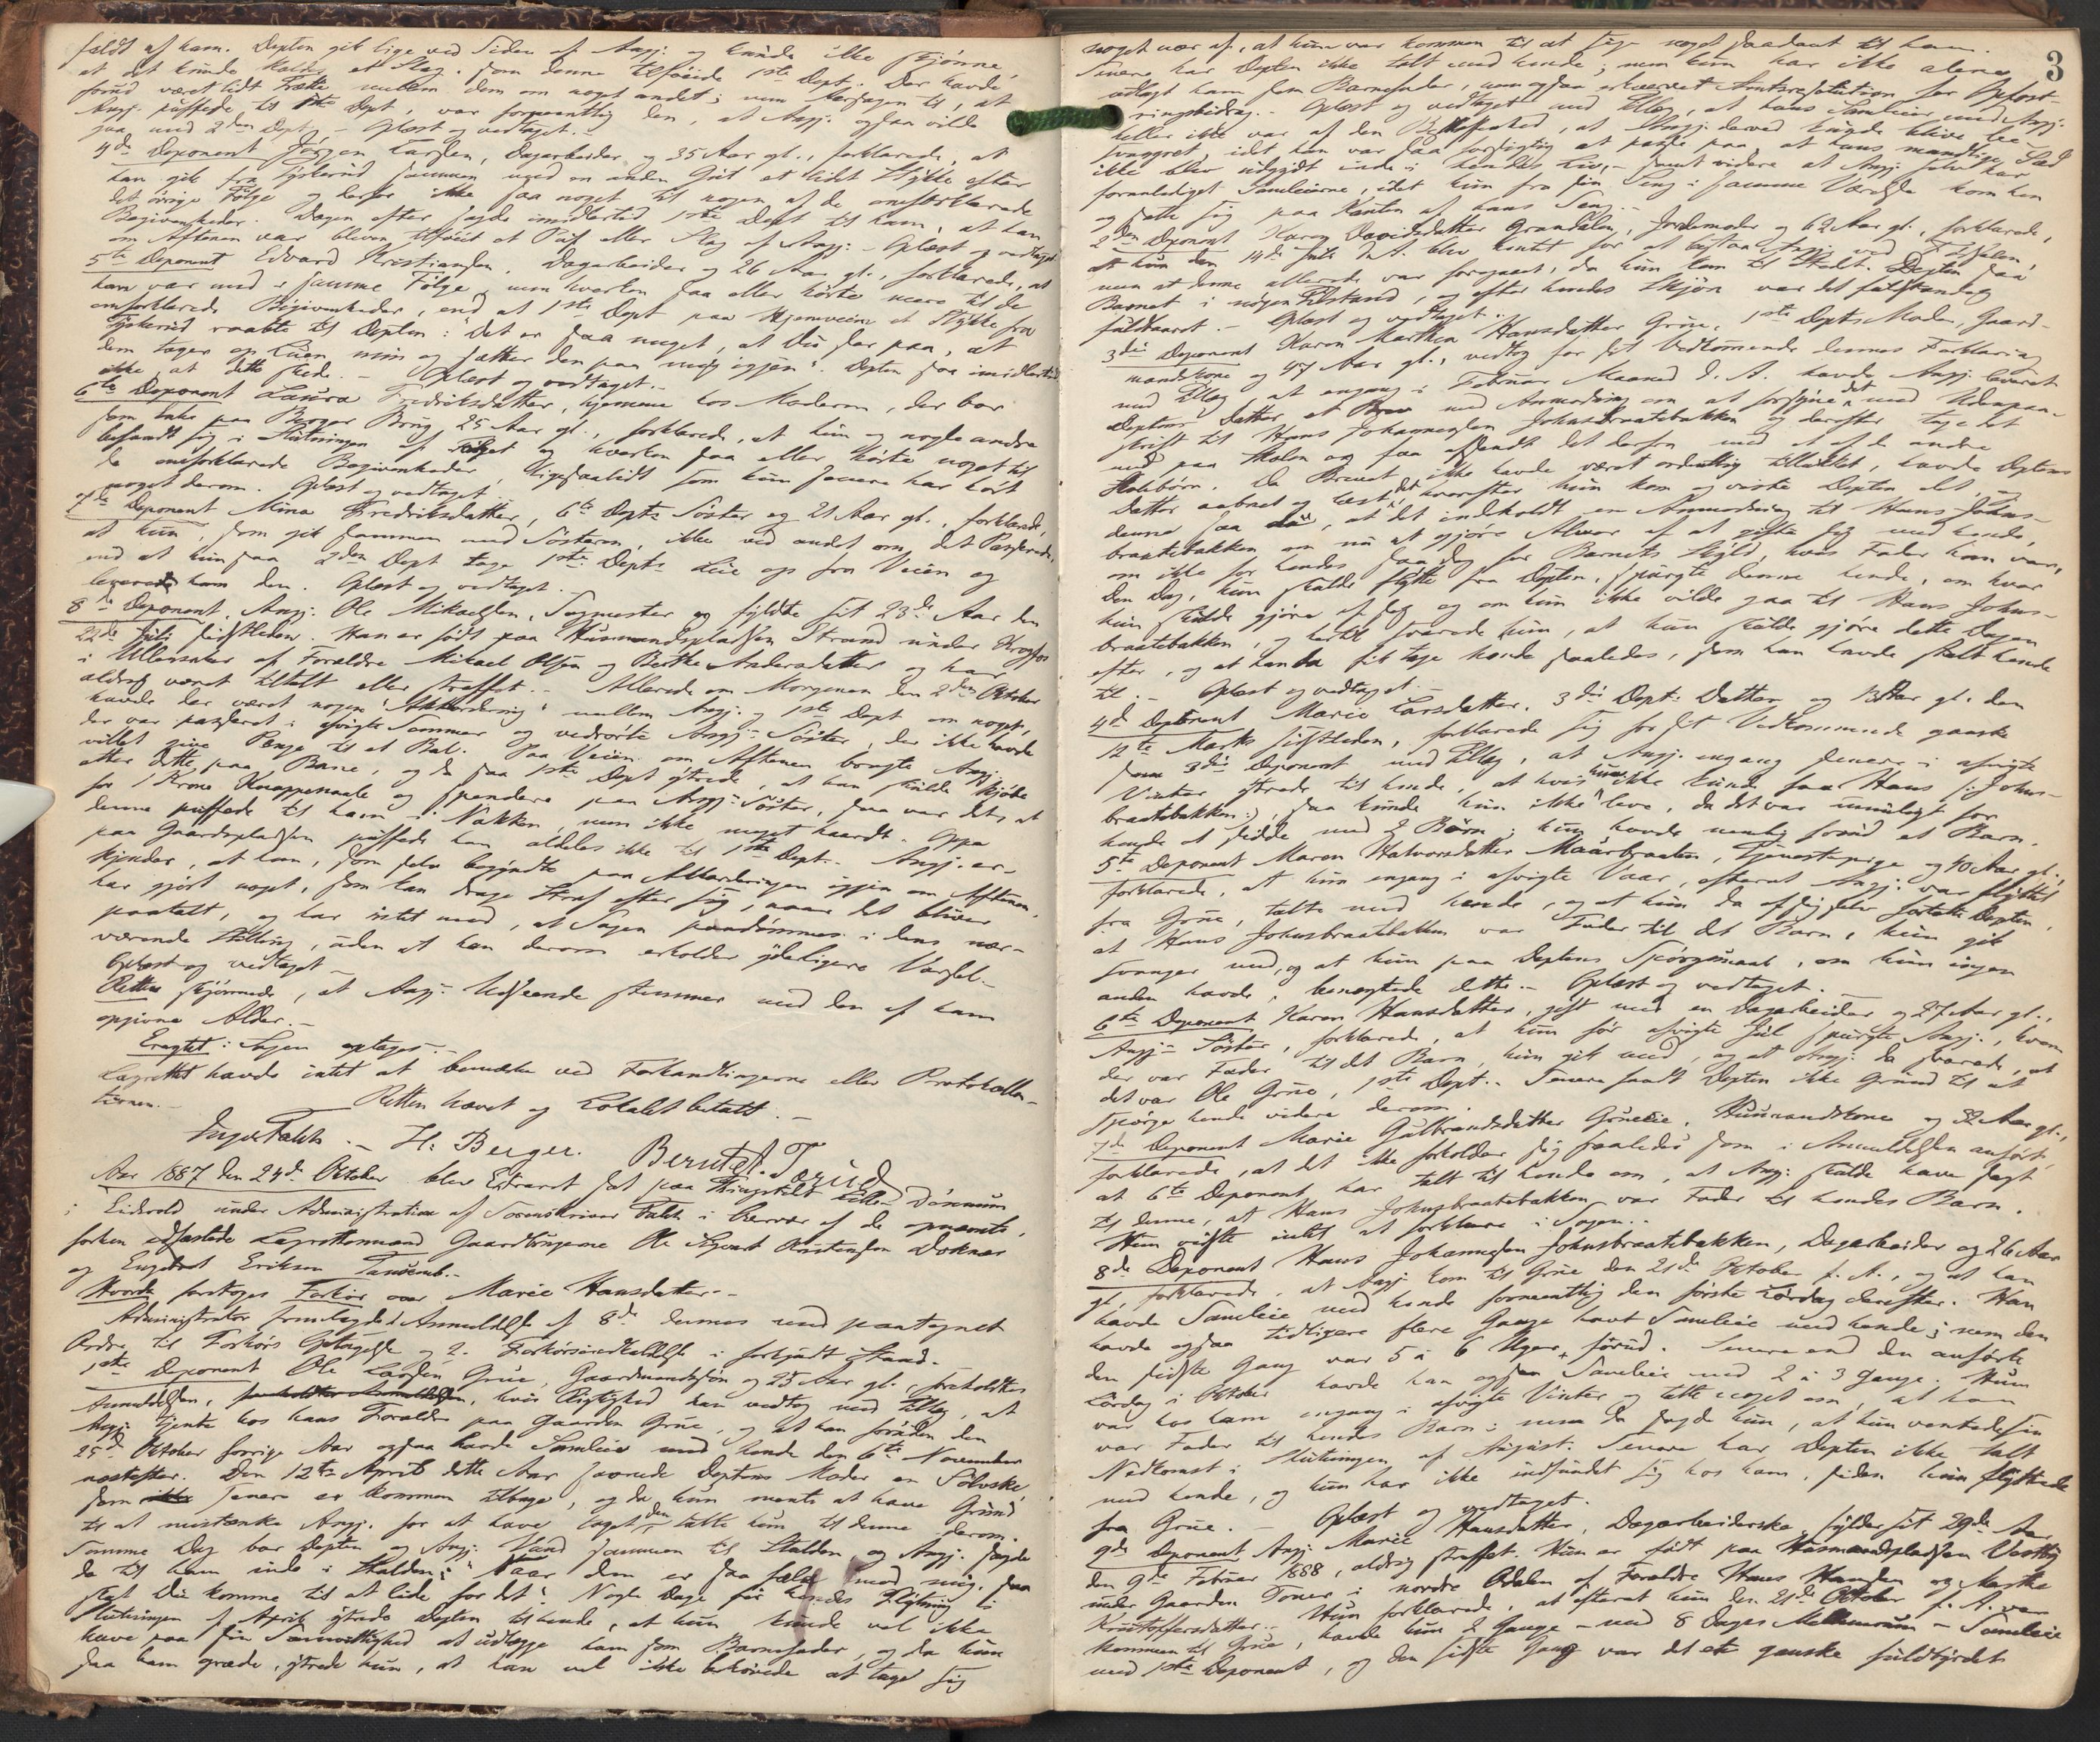 faldt af ham. Depten gik lige ved Siden af Angj. og kunde ikke skjønne,
at det kunde kaldes et Slag, som denne tilføiede 1ste Dept. Der havde
forud været lidt Trætte mellem dem om noget andet; men Aarsagen til, at
Angj. puffede til 1ste Dept, var formentlig den, at Angj. ogsaa vilde
gaa med 2den Dept. – Oplæst og vedtaget. –
4de Deponent Jörgen Larsen, Dagarbeider og 35 Aar gl., forklarede, at
han gik fra Tyskerud sammen med en anden Gut et lidet Stykke efter
det øvrige Følge og derfor ikke saa noget til nogen af de omforklarede
Begivenheder. Dagen efter sagde imidlertid 1ste Dept til ham, at han
om Aftenen var bleven tilføiet et Puf eller Slag af Angj. – Oplæst og vedtaget.
5te Deponent Edvard Kristiansen, Dagarbeider og 26 Aar gl., forklarede, at
han var med i samme Følge, men hverken saa eller hørte mere til de
omforklarede Begivenheder, end at 1ste Dept paa Hjemveien et Stykke fra
Tyskerud raabte til Depten: "Det er saa meget, at Du ser paa, at
dem tager op Luen min og sætter den paa mig igjen". Depten saa imidlertid
ikke at dette skede. – Oplæst og vedtaget. –
6te Deponent Laura Fredriksdatter, hjemme hos Moderen, der bor
som Enke paa Berger Brug, 25 Aar gl., forklarede, at hun og nogle andre
befandt sig i Slutningen af Følget og hverken saa eller hørte noget til
de omforklarede Begivenheder, ligesaalidt som hun senere har hørt
noget derom. Oplæst og vedtaget.
7de Deponent Mina Fredriksdatter, 6te Depts Søster og 21 Aar gl., forklarede,
at hun, som gik sammen med Søsteren, ikke ved andet om det Passerede,
end at hun saa 2den Dept tage 1ste Depts Lue op fra Veien og
levere ham den. Oplæst og vedtaget.
8de Deponent, Angj. Ole Mikaelsen, Sagmester og fyldte sit 23de Aar den
22de Juli sidstleden. Han er født paa Husmandspladsen Strand under Krogfos
i Ullensaker af Forældre Mikael Olsen og Berthe Andersdatter og har
aldrig været tiltalt eller straffet. – Allerede om Morgenen den 2den Oktober
havde der været nogen "Akkordering" mellem Angj. og 1ste Dept om noget,
der var passeret i afvigte Sommer og vedrørte Angj.s Søster, der ikke havde
villet give Penge til et Bal. Paa Veien om Aftenen bragte Angj.
atter dette paa Bane, og da saa 1ste Dept ytrede, at han skulde kjøbe
for 1 Krone Knappenaale og spendere paa Angj.s Søster, saa var det, at
denne puffede til ham i Nakken, men ikke meget haardt. Oppe
paa Gaardspladsen puffede han aldeles ikke til 1ste Dept. – Angj. er-
kjender, at han, som selv begyndte paa Akkorderingen igjen om Aftenen,
har gjort noget, som kan drage Straf efter sig, naar det bliver
paatalt, og har intet imod, at Sagen paadømmes i dens nær-
værende Stilling, uden at han derom erholder yderligere Varsel. –
Oplæst og vedtaget. –
Retten skjønnede, at Angj.s Udseende stemmer med den af ham
opgivne Alder. –
Eragtet: Sagen optages. –
Lagrettet havde intet at bemærke ved Forhandlingerne eller Protokolla-
tionen. – Retten hævet og Lokalet betalt. –
H. Berger. Bernt A. Torüd
Aar 1887 den 24de Oktober blev Extraret sat paa Thingstedet Dønnum
i Eidsvold under Administration af Sorenskriver Falch i Nærvær af de opnævnte,
forhen edfæstede Lagrettemænd Gaardbrugerne Ole Sigvart Kristensen Doknæs
og Engebret Eriksen Tanderud. –
Hvorda foretoges Forhør over Marie Hansdatter. –
Administrator fremlagde 1 Anmeldelse af 8de dennes med paategnet
Ordre til Forhørs Optagelse og 2. Forhørsindkaldelse i forkyndt Stand. –
1ste Deponent Ole Larsen Grue, Gaardmandssøn og 25 Aar gl., foreholdtes
Anmeldelsen, hvis Rigtighed han vedtog med Tillæg, at
Angj. tjente hos hans Forældre paa Gaarden Grue, og at han foruden den
25de Oktober forrige Aar ogsaa havde Samleie med hende den 6te November
næstefter. Den 12te April dette Aar savnede Deptens Moder en Sølvske,
som senere er kommen tilbage, og da hun mente at have Grund
til at mistænke Angj. for at have taget den, talte hun til denne derom.
Samme Dag bar Depten og Angj. Vand sammen til Stalden, og Angj. sagde
da til ham inde i Stalden: "Naar dem er saa fæl mod mig, saa
skal Du komme til at lide for det". Nogle Dage før hendes Flytning i
Slutningen af April ytrede Depten til hende, at hun kunde vel ikke
have paa sin Samvittighed at udlægge ham som Barnefader, og da hun
saa ham græde, ytrede hun, at han vel ikke behøvede at tage sig
3
noget nær af, at hun var kommen til at sige noget saadant til ham.
Senere har Depten ikke talt med hende; men hun har ikke alene
udlagt ham som Barnefader, men ogsaa erhvervet Amtsresolution for Opfost-
ringsbidrag. – Oplæst og vedtaget med Tillæg, at hans Samleier med Angj.
heller ikke var af den Beskaffenhed, at Angj. derved kunde blive be-
svangret, idet han var saa forsigtig at passe paa, at hans mandlige Sæd
ikke blev udgydt inde i hendes Liv, – samt videre at Angj. selv har
foranlediget Samleierne, idet hun fra sin Seng i samme Værelse kom hen
og satte sig paa Kanten af hans Seng. –
2den Deponent Karen Davidsdatter Grandalen, Jordemoder og 62 Aar gl., forklarede,
at hun den 14de Juli d. A. blev hentet for at bistaa Angj. ved Fødselen,
men at denne allerede var foregaaet, da hun kom til Stedt. Depten saa
Barnet i nøgen Tilstand, og efter hendes Skjøn var det fuldstændig
fuldbaaret. – Oplæst og vedtaget. –
3die Deponent Karen Marthea Hansdatter Grue, 1ste Depts Moder, Gaard-
mandskone og 47 Aar gl., vedtog for sit Vedkommende dennes Forklaring
med Tillæg, at engang i Februar Maaned d. A. havde Angj. leveret
Deptens Datter et Brev med Anmodning om at forsyne det med Udenpaa-
skrift til Hans Johannessen Johnsbraatebakken og derefter tage det
med paa Skolen og faa afsendt det derfra med et af de andre
Skolebørn. Da Brevet ikke havde været ordentlig tillukket, havde Deptens
Datter aabnet og læst det, hvorefter hun kom og viste Depten det, og
denne saa da, at det indeholdt en Anmodning til Hans Johns-
braatebakken om nu at gjøre Alvor af at gifte sig med hende,
om ikke for hendes saa dog for Barnets Skyld, hvis Fader han var.
Den Dag, hun skulde flytte fra Depten, spurgte denne hende, om hvor
hun skulde gjøre af sig og om hun ikke vilde gaa til Hans Johns-
braatebakken, og hertil svarede hun, at hun skulde gjøre dette Dagen
efter, og at han da fik tage hende saaledes, som han havde stelt hende
til. – Oplæst og vedtaget. –
4de Deponent Marie Larsdatter, 3die Depts Datter og 13 Aar gl. den
12te Marts sidstleden, forklarede sig for sit Vedkommende ganske
som 3die Deponent med Tillæg, at Angj. engang senere i afvigte
Vinter ytrede til hende, at hvis hun ikke kunde faa Hans (: Johns-
braatebakken :), saa kunde hun ikke leve, da det var umuligt for
hende at sidde med 2 Børn; hun havde nemlig forud et Barn.
5te Deponent Maren Halvorsdatter Maurbraaten, Tjenestepige og 40 Aar gl.,
forklarede, at hun engang i afvigte Vaar, efterat Angj. var flyttet
fra Grue, talte med hende, og at hun da af sig selv fortalte Depten,
at Hans Johnsbraatebakken var Fader til det Barn, hun gik
svanger med, og at hun paa Deptens Spørgsmaal, om hun ingen
anden havde, benægtede dette. – Oplæst og vedtaget. –
6te Deponent Karen Hansdatter, gift med en Dagarbeider og 27 Aar gl.,
Angj.s Søster, forklarede, at hun før afvigte Jul spurgte Angj., hvem
der var Fader til det Barn, hun gik med, og at Angj. da svarede, at
det var Ole Grue, 1ste Dept. – Senere fandt Depten ikke Grund til at
spørge hende videre derom.
7de Deponent Marie Gulbrandsdatter Grueeie, Husmandskone og 52 Aar gl.,
forklarede, at det ikke forholder sig saaledes som i Anmeldelsen anført,
at 6te Deponent har talt til hende om, at Angj. skulde have sagt
til denne, at Hans Johnsbraatebakken var Fader til hendes Barn.
Hun vidste intet at forklare i Sagen. –
8de Deponent Hans Johannesen Johnsbraatebakken, Dagarbeider og 26 Aar
gl., forklarede, at Angj. kom til Grue den 21de Oktober f. A., og at han
havde Samleie med hende formentlig den første Lørdag derefter. Han
havde ogsaa tidligere flere Gange havt Samleie med hende; men den
den sidste Gang var 5 à 6 Uger forud. Senere end den anførte
Lørdag i Oktober havde han ogsaa Samleie med 2 à 3 Gange. Hun
var hos ham engang i afvigte Vinter og talte noget om, at han
var Fader til hendes Barn; men da sagde hun, at hun ventede sin
Nedkomst i Slutningen af August. Senere har Depten ikke talt
med hende, og hun har ikke indfundet sig hos ham, siden hun flyttede
fra Grue. – Oplæst og vedtaget.
9de Deponent Angj. Marie Hansdatter, Dagarbeiderske, fylder sit 29de Aar
den 9de Februar 1888, aldrig straffet. Hun er født paa Husmandspladsen Vestby
under Gaarden Toner i nordre Odalen af Forældre Hans Hansen og Marthe
Kristoffersdatter. – Hun forklarede, at efterat hun den 21de Oktober f. A. var
kommen til Grue, havde hun 2 Gange – med 8 Dages Mellemrum – Samleie
med 1ste Deponent, og den sidste Gang var det et ganske fuldbyrdet